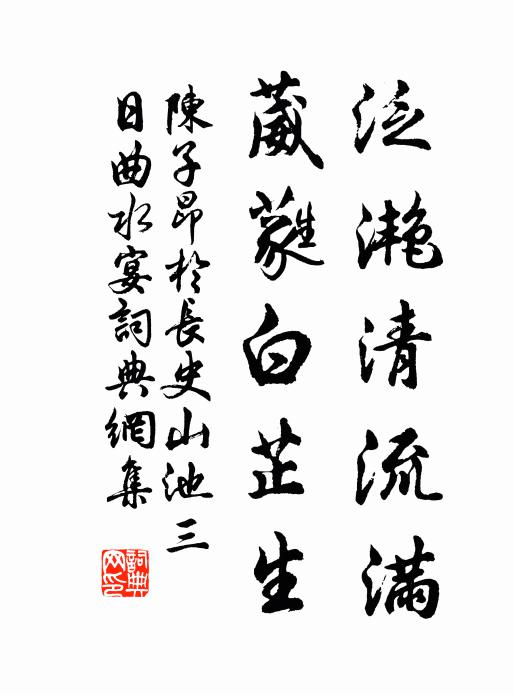 泛滟清流滿
葳蕤白芷生
陳子昂於長史山池三
日曲水宴詞典網集
詞典
网印